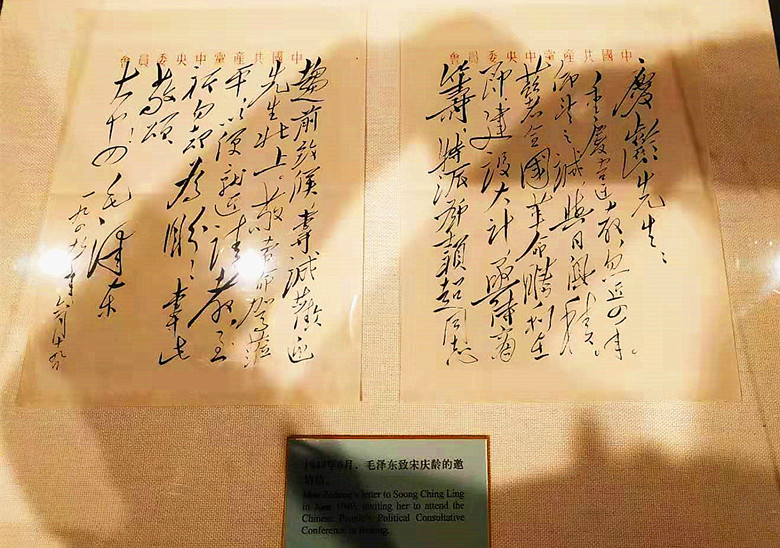 中國共產黨中央委員會
慶齡先生：
重慶違教，忽近四年。
仰望之誠，與日俱積。
茲者全國革命勝利在
即，建設大計，亟待商
籌，特派鄧穎超同志
中國共產黨中央委員會
趨前致候，專誠歡迎
先生北上。敬希命駕蒞
平，以便就近請教，至
祈勿却為盼！專此。
敬頌
大安！毛澤東
一九四九年六月十九日
1949年6月，毛泽东致宋庆龄的邀
请信。
Mao Zedong's letter to Soong Ching Ling
in June 1949, inviting her to attend the
Chinese People's Political Consultative
Conference in Beijing.